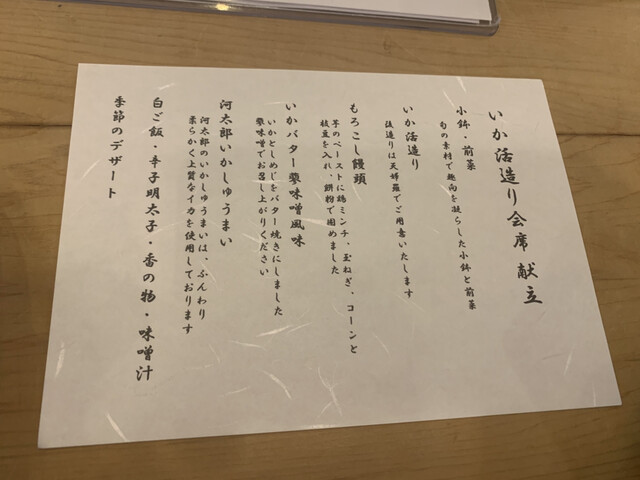 いか活造り会席 献立
小鉢・前菜
旬の素材で趣向を凝らした小鉢と前菜
いか活造り
後造りは天婦羅でご用意いたします
もろこし饅頭
芋のペーストに鶏ミンチ、玉ねぎ、コーンと
枝豆を入れ、餅粉で固めました
いかバター蓼味噌風味
いかとしめじをバター焼きにしました
蓼味噌でお召し上がりください
河太郎いかしゅうまい
河太郎のいかしゅうまいは、ふんわり
柔らかく上質なイカを使用しております
白ご飯・辛子明太子・香の物・味噌汁
季節のデザート